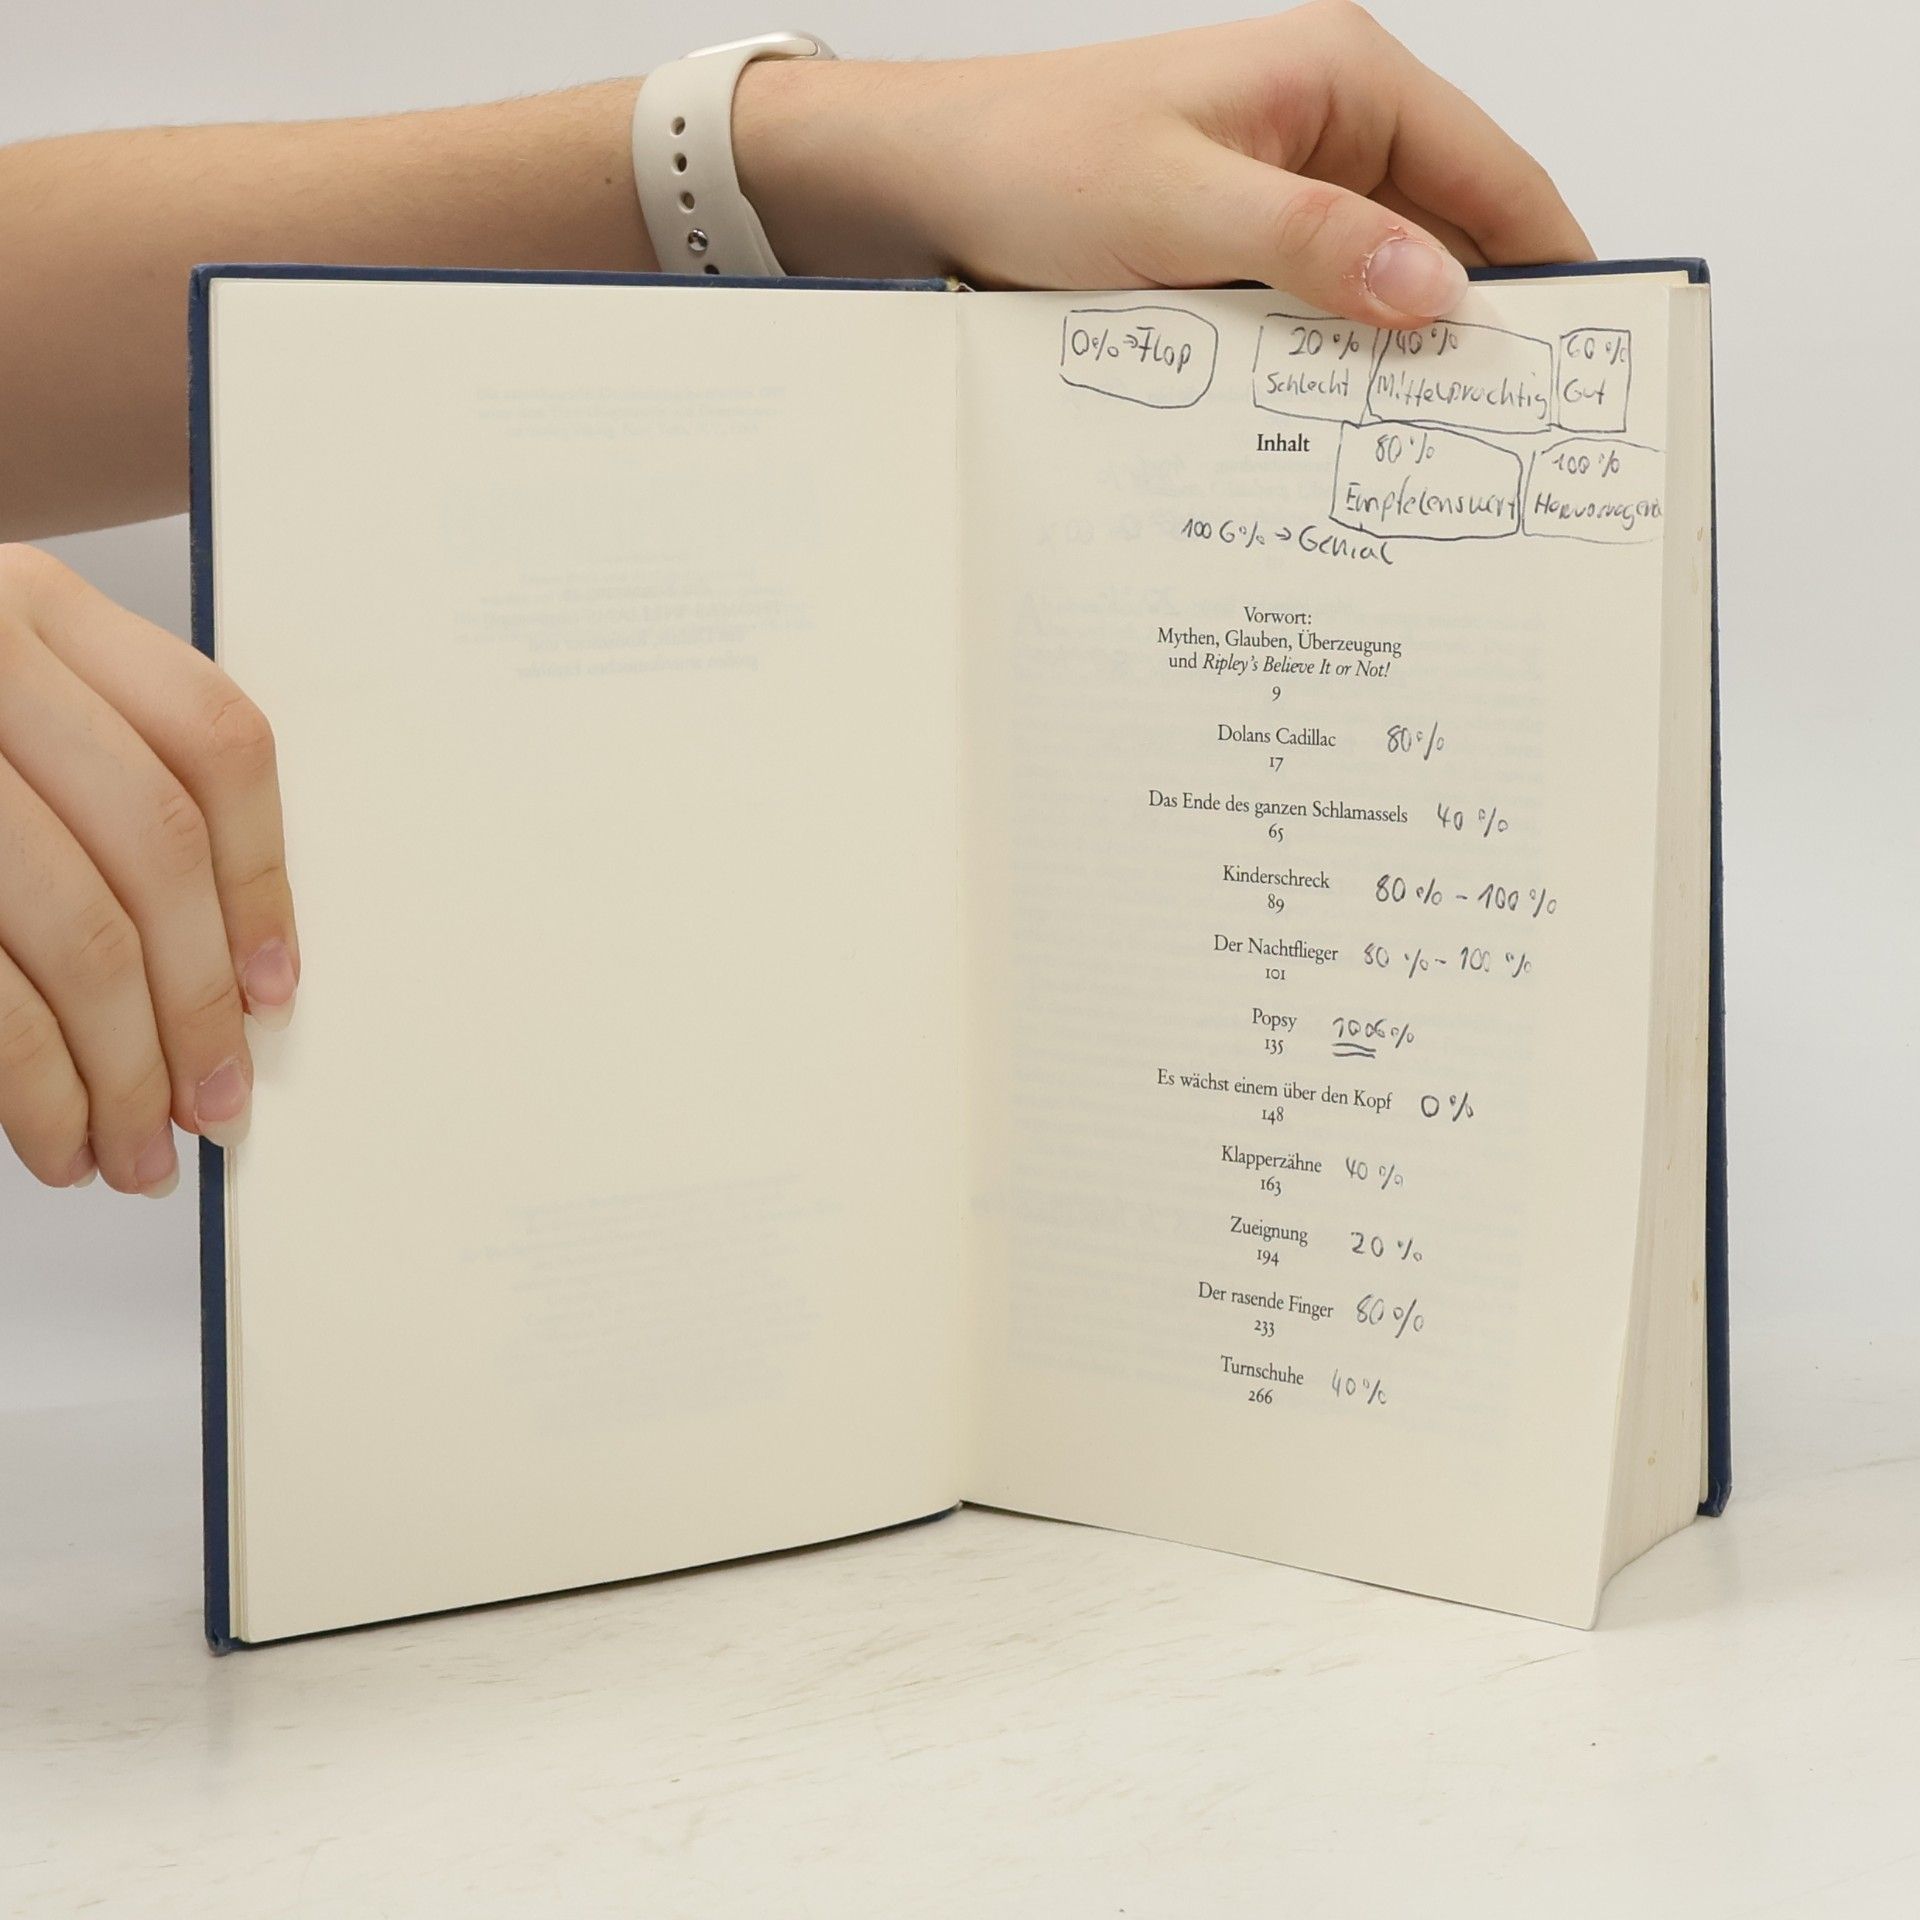 0% → Flop
20 % Schlecht
40 % Mittelprächtig
60 % Gut
Inhalt
80 % Empfelenswert
100 %
100 G% → Genial
Vorwort:
Mythen, Glauben, Überzeugung
und Ripley's Believe It or Not!
9
Dolans Cadillac 80%
17
Das Ende des ganzen Schlamassels 40 %
65
Kinderschreck 80 % - 100 %
89
Der Nachtflieger 80 % - 100 %
101
Popsy 100G%
135
Es wächst einem über den Kopf 0 %
148
Klapperzähne 40 %
163
Zueignung 20 %
194
Der rasende Finger 80 %
233
Turnschuhe 40 %
266